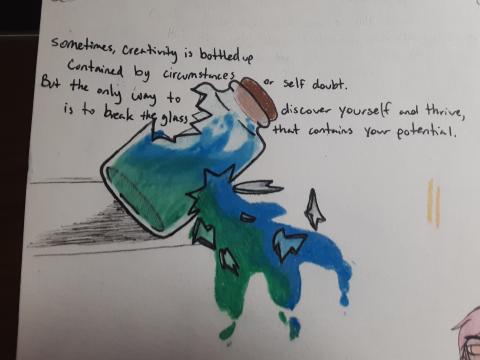 Sometimes, creativity is bottled up
Contained by circumstances or self doubt.
But the only way to discover yourself and thrive,
is to break the glass that contains your potential.